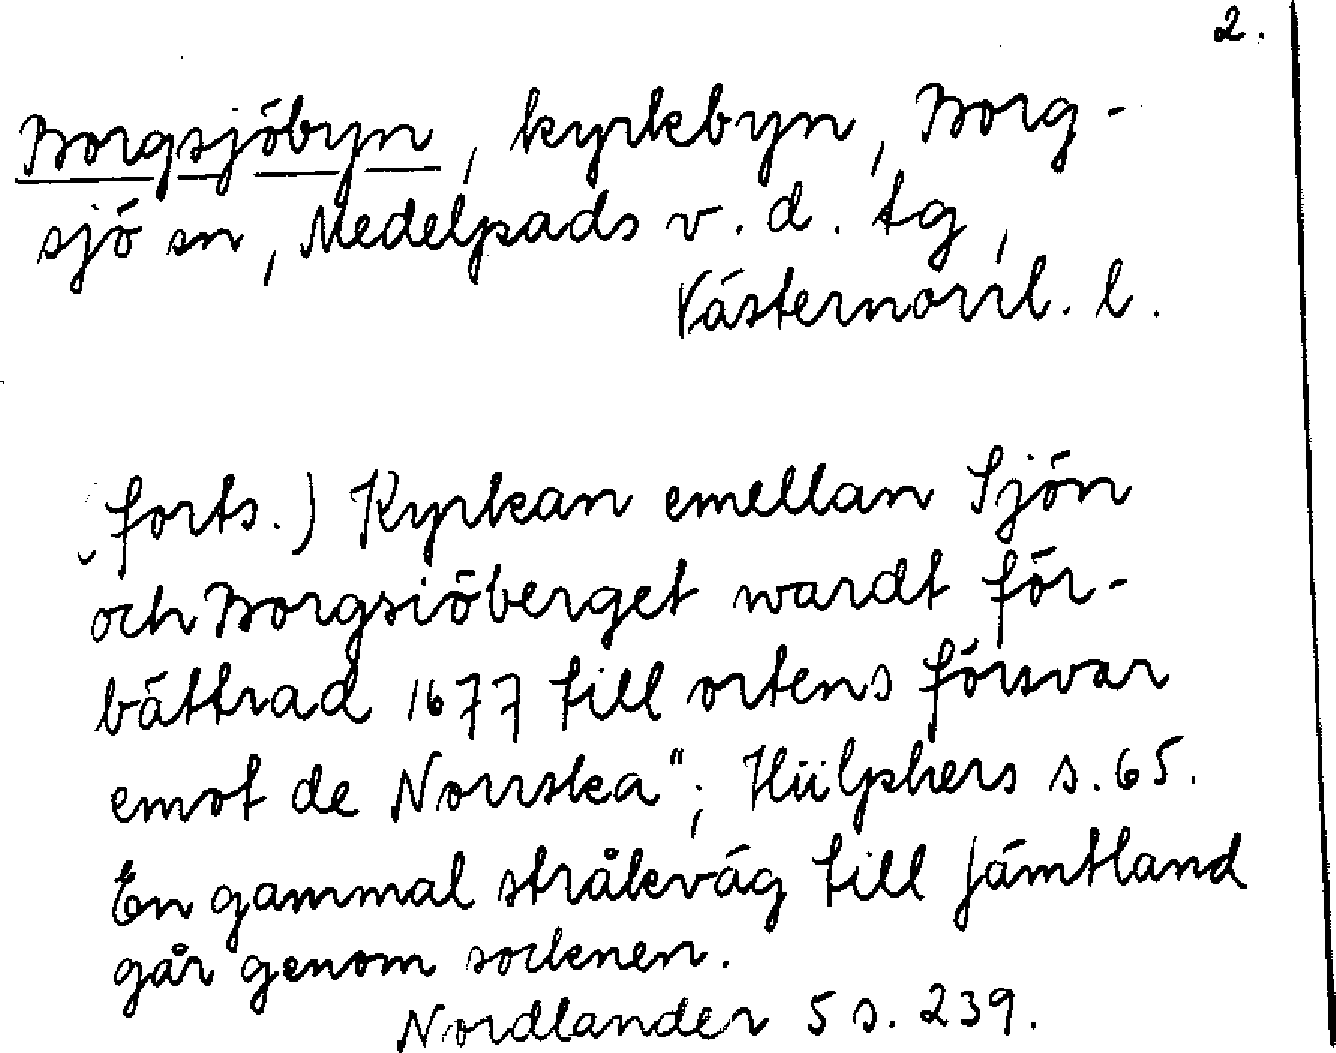 2.
Borgsjöbyn, kyrkbyn, Borg-
sjö sn, Medelpads v. d. tg,
Västernorrl. l.
(forts.) Kyrkan emellan Sjön
och Borgsiöberget wardt för-
bättrad 1677 till ortens försvar
emot de Norrska"; Hülphers s. 65.
En gammal stråkväg till Jämtland
går genom socknen.
Nordlander 5 s. 239.